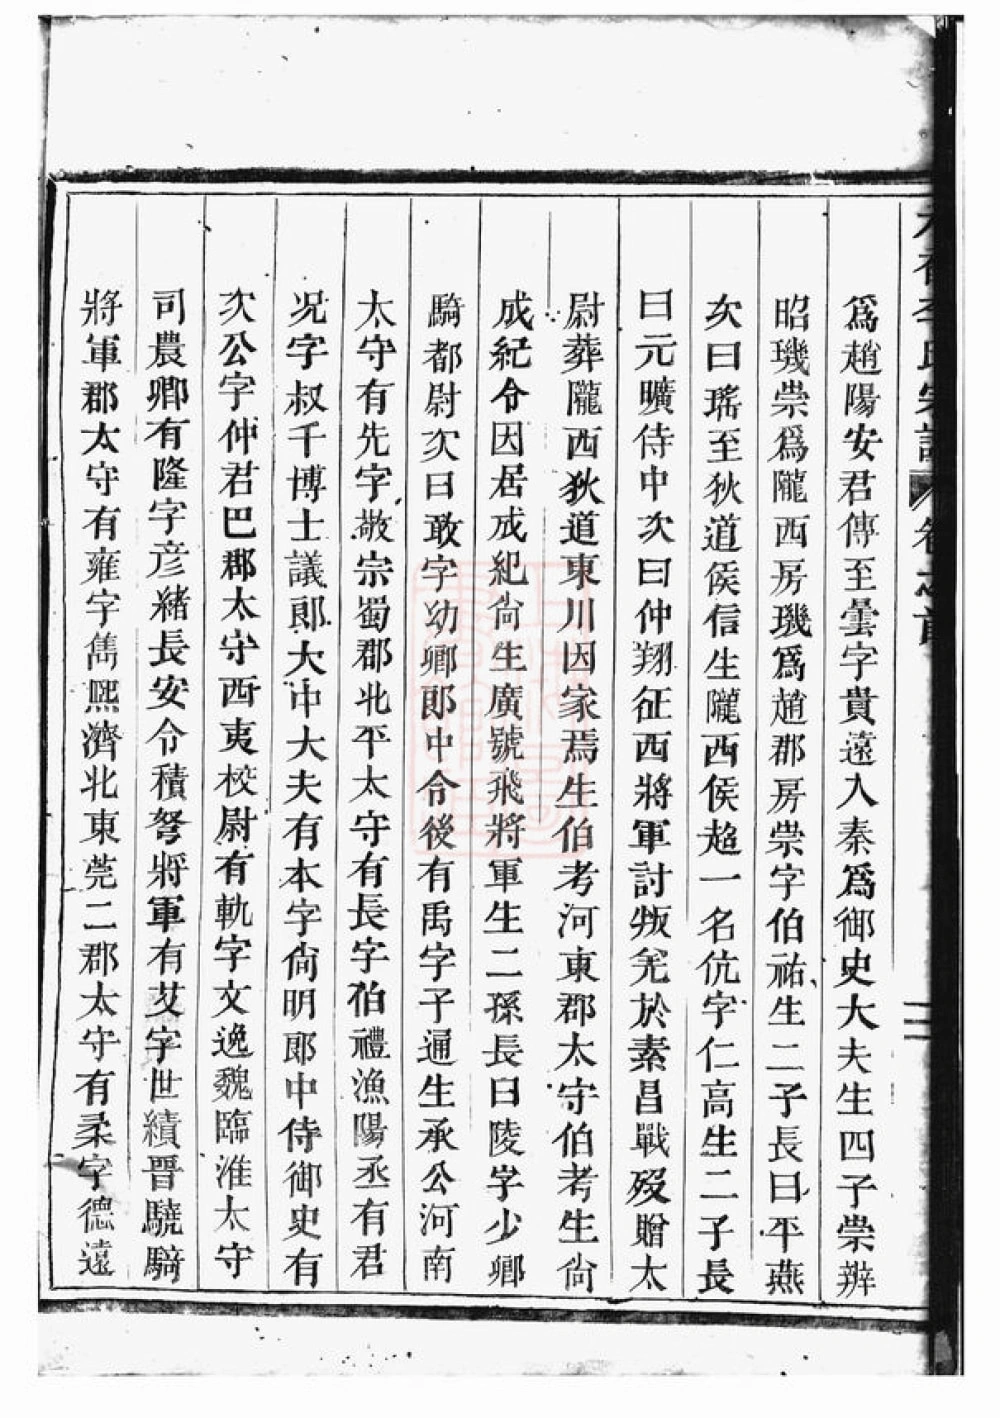 爲趙陽安君傳至曇字貴遠入秦爲御史大夫生四子崇辨
昭璣崇爲隴西房璣爲趙郡房崇字伯祐生二子長曰平燕
次曰瑤至狄道侯信生隴西侯超一名伉字仁高生二子長
曰元曠侍中次曰仲翔征西將軍討叛羌於素昌戰歿贈太
尉葬隴西狄道東川因家焉生伯考河東郡太守伯考生尙
成紀令因居成紀尙生廣號飛將軍生二孫長曰陵字少卿
騎都尉次曰敢字幼卿郎中令後有禹字子通生承公河南
太守有先字敬宗蜀郡北平太守有長字伯禮漁陽丞有君
況字叔千博士議郎大中大夫有本字尙明郎中侍御史有
次公字仲君巴郡太守西夷校尉有軌字文逸魏臨淮太守
司農卿有隆字彦緒長安令積弩將軍有艾字世績晋驍騎
將軍郡太守有雍字雋熙濟北東莞二郡太守有柔字德遠